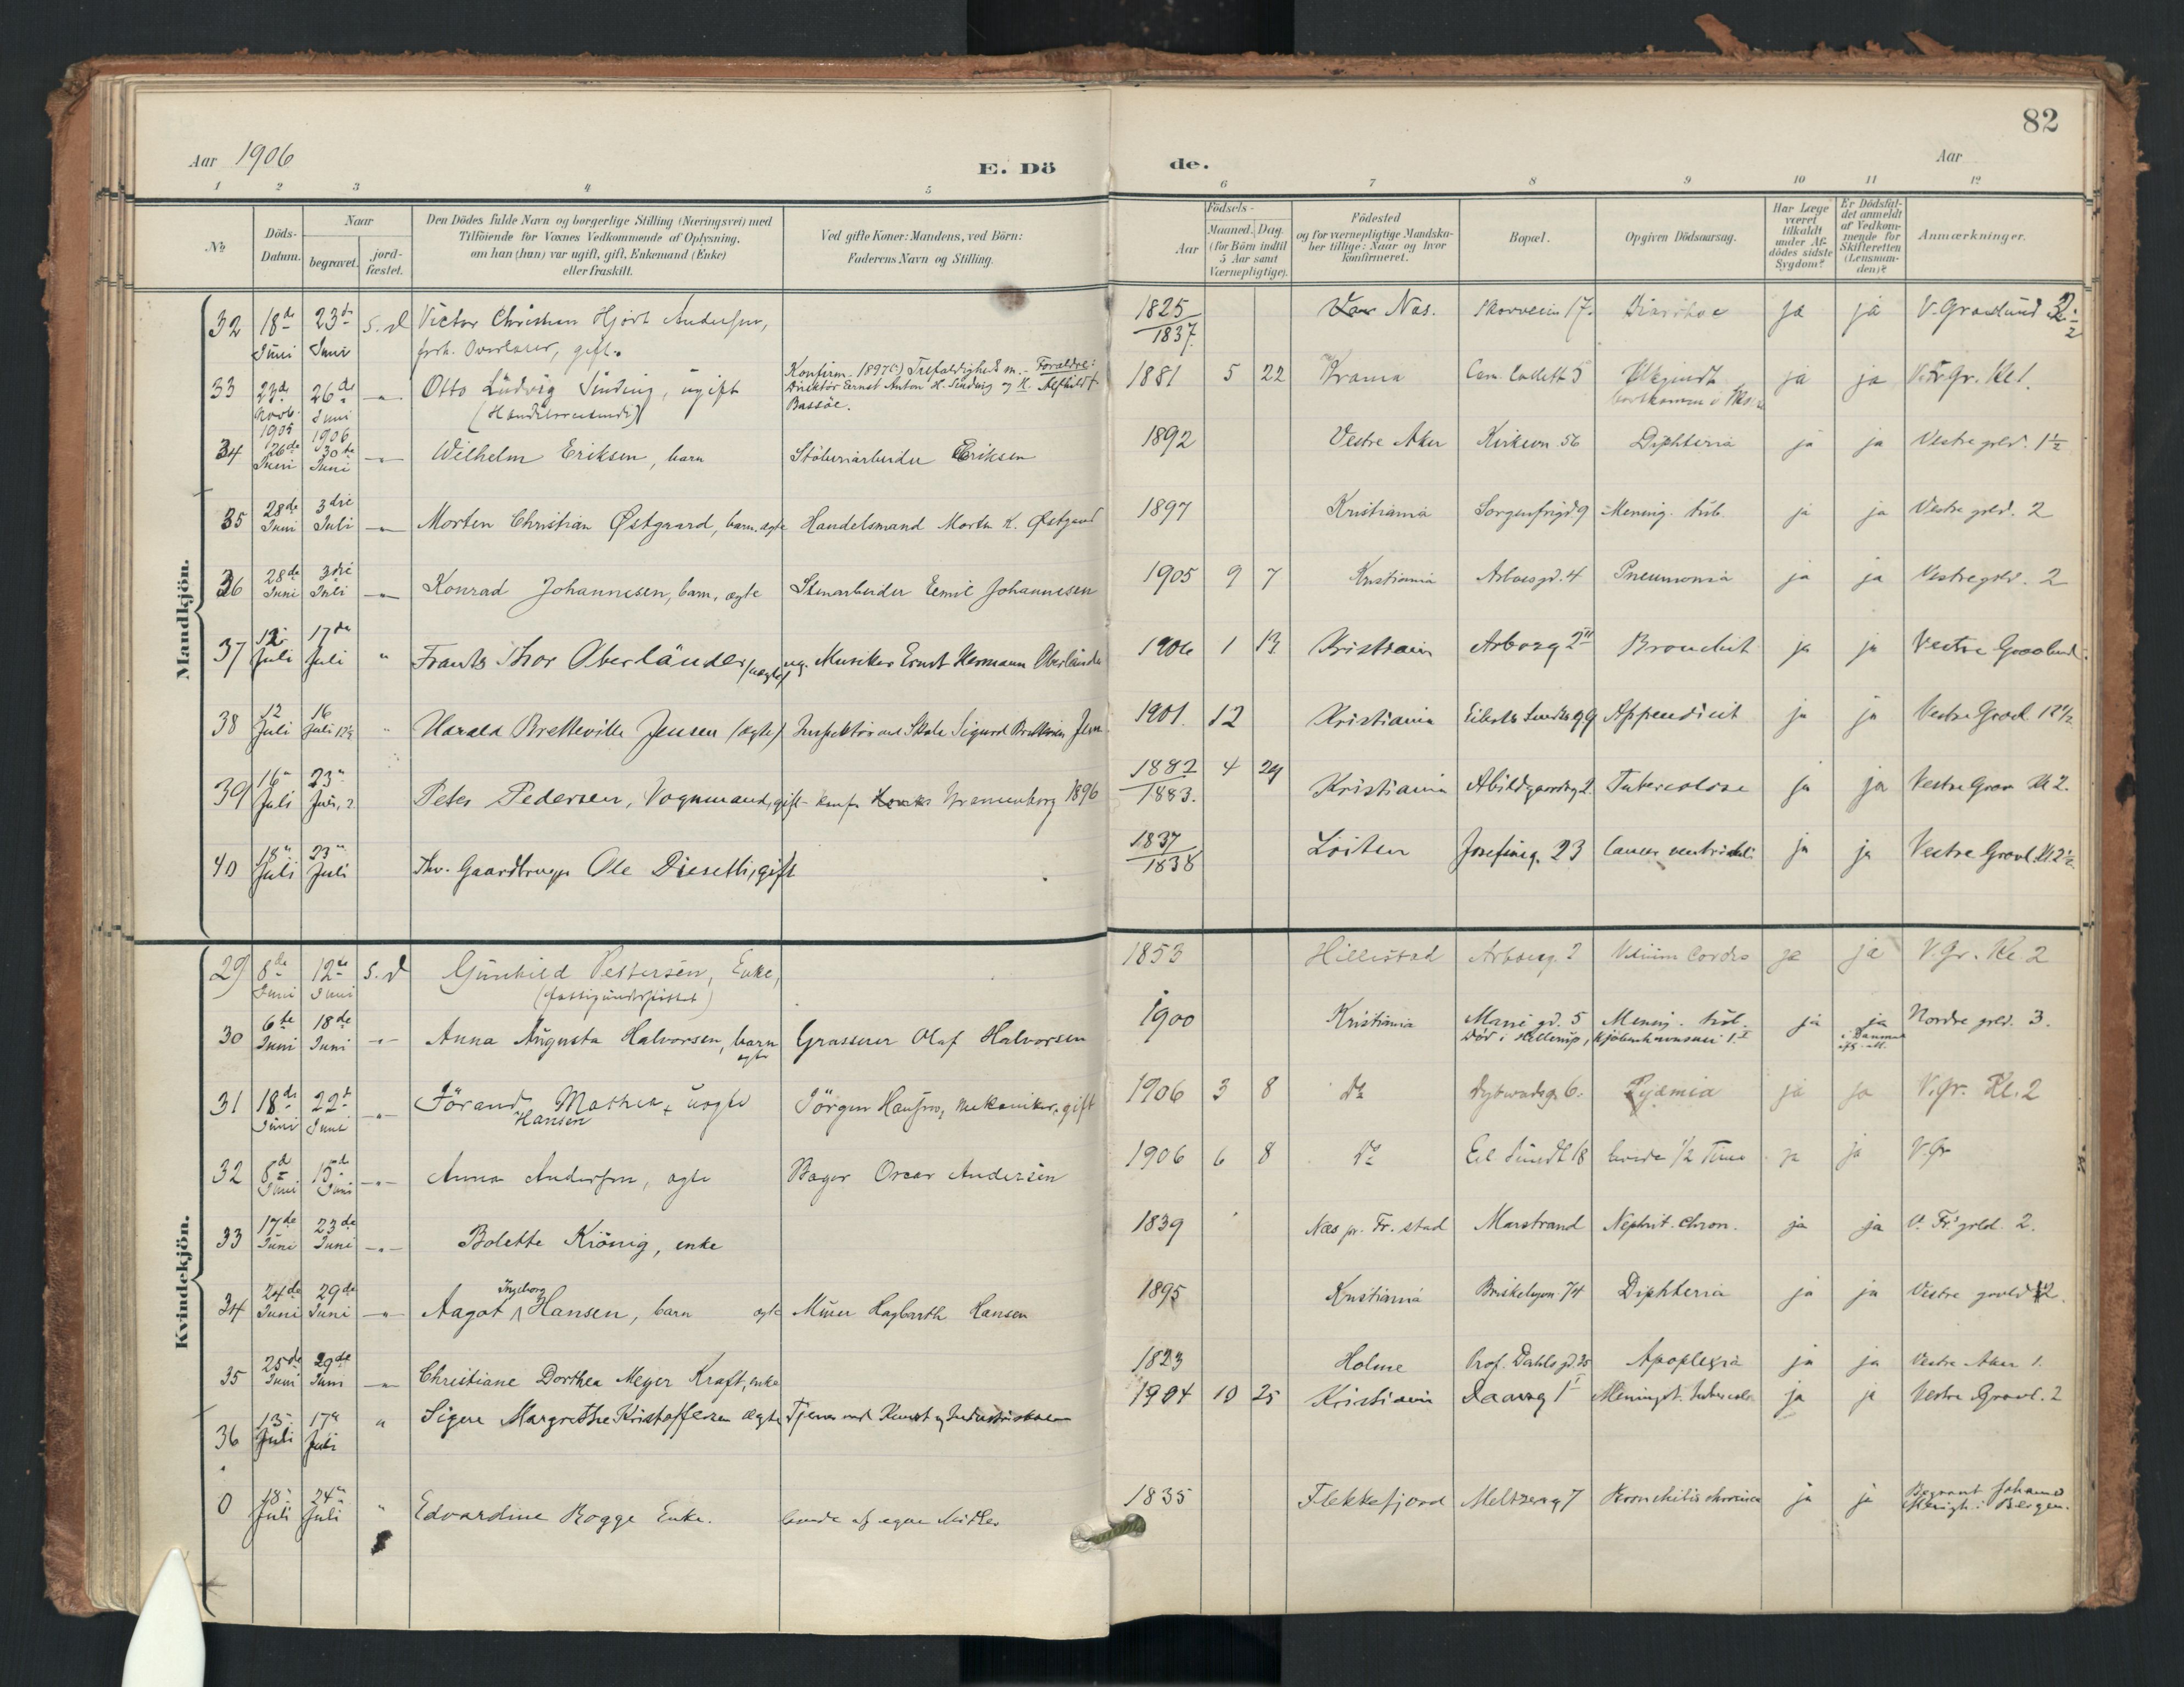 82
Aar 1906
E. Dö
de.
Aar
1 2 3 4 5 6 7 8 9 10 11 12
No.
Döds-Datum.
Naar
begravet.
jord-fæstet.
Den Dödes fulde Navn og borgerlige Stilling (Næringsvei) med
Tilföiende for Voxnes Vedkommende af Oplysning,
om han (hun) var ugift, gift, Enkemand (Enke)
eller fraskilt.
Ved gifte Koner: Mandens, ved Börn:
Faderens Navn og Stilling.
Födsels-
Aar
Maaned. Dag.
(for Börn indtil
5 Aar samt
Værnepligtige).
Födested
og for værnepligtige Mandska-
ber tillige: Naar og hvor
konfirmeret.
Bopæl.
Opgiven Dödsaarsag.
Har Læge
været
tilkaldt
under Af-
dödes sidste
Sygdom?
Er Dödsfal-
det anmeldt
af Vedkom-
mende for
Skifteretten
(Lensman-
den)?
Anmærkninger.
Mandkjön.
32 18de Juni 23de Juni s. d Victor Christian Hjort Andersen, 1825/1837 Nas. 17. ja ja V. Gravlund
gift.
33 22de Novb. 1905 26de Juni 1906 -"- Otto Ludvig Sinding, ugift Konfirm. 1897 Trefoldigheds m. - Forældre: 1881 5 22 Krania Cam. Colletts 5 ja ja Kl 1.
Direktör Ernst Anton H. Sinding og H. Alfhildt
Bassöe.
34 26de Juni 30te Juni -"- Wilhelm Eriksen, barn Eriksen 1892 Vestre Aker Kirkevn. 56 Diphteria ja ja Vestre grld. 1½
35 28de Juni 3die Juli -"- Morten Christian Østgaard, barn, ægte Handelsmand Morten K. Østgaard 1897 Kristiania Sorgenfrigd 9 Mening. tub. ja ja Vestre grld. 2
36 28de Juni 3die Juli -"- Konrad Johannesen, barn, ægte Stenarbeider Emil Johannesen 1905 9 7 Kristiania Arboesgd. 4 Pneumonia ja ja Vestre grld. 2
37 12 Juli 17de Juli " Frants Thor Oberländer (uægte) ug. Musiker Ernst Hermann Oberländer 1906 1 13 Kristiania Arboesg 2 Bronchit ja ja Vestre Gravlund.
38 12 Juli 16 Juli 12½ " Harald Bretteville Jensen (ægte) Inspektör ved Skole Sigurd Bretteville Jensen 1901. 12 Kristiania Eilerts Sundts g 9 Appendicit ja ja Vestre Gravl 12½
39 16" Juli 23" Juli, 2 Peter Pedersen, Vognmand, gift - konf. Grønnenborg 1896 1882/1883. 4 24 Kristiania Abildgaardsg 2. Tuberculose ja ja Vestre Grav Kl 2.
40 18" Juli 23" Juli Fhv. Gaardbruger Ole Dieseth, gift 1837/1838 Löiten Josefinesg. 23 Cancer ventriculi ja ja Vestre Gravl. Kl 2½
Kvindekjön.
29 8de Juni 12te Juni s. d Gunhild Pettersen, Enke, 1853 Hillestad Arboesg. 2 Vitium Cordis ja ja V. Gr. Kl. 2
(fattigunderstöttet)
30 6te Juni 18de Juni -"- Anna Augusta Halvorsen, barn ægte Grosserer Olaf Halvorsen 1900 Kristiania Marie gd. 5 Mening. tub. ja ja Nordre grld. 3.
Död i Hellerup, i Danmark
31 18de Juni 22de Juni -"- Jörand Mathea Hansen uægte Jörgen Hansen, mekaniker, gift 1906 3 8 Do Dybwadsg. 6. Pyæmia ja ja V. Gr. Kl. 2
32 8de Juni 15de Juni -"- Anna Andersen, ægte Bager Oscar Andersen 1906 6 8 Do Eil. Sundt 18 levede ½ Time ja ja V. Gr
33 17de Juni 23de Juni -"- Bolette Krönig, enke 1839 Næs pr. Fr. stad Marstrand Nephrit. chron. ja ja V. Fr. grld. 2.
34 24de Juni 29de Juni -"- Aagot Ingeborg Hansen, barn ægte Murer Hagbarth Hansen 1895 Kristiania Briskebyvn 74 Diphteria ja ja Vestre gravld 2.
35 25de Juni 29de Juni -"- Christiane Dorthea Meyer Kraft, enke 1823 Holme Prof. Dahls gd. 25 Apoplexia ja ja Vestre Aker 1.
36 13 Juli 17" Juli " Signe Margrethe Kristoffersen ægte Tjener ved Kunst og Industriskolen 1904 10 25 Kristiania Daasg 1 Meningit. tubercul. ja ja Vestre Gravl. 2
0 18" Juli 24" Juli " Edvardine Rogge Enke. levede af egne Midler 1835 Flekkefjord Meltzersg 7 Bronchitis chronica ja ja Begravet Johannes
Menigh. i Bergen.